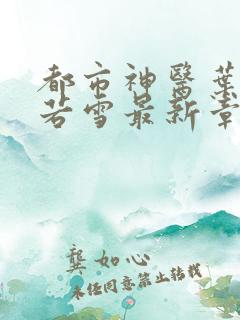 都市神醫葉
若雪最新章
龔如心
未经同意禁止转载